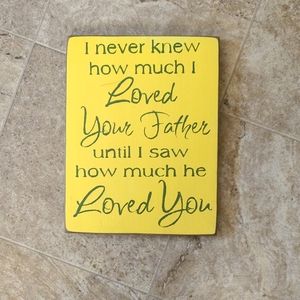 I never knew
how much I
Loved
Your Father
until I saw
how much he
Loved You